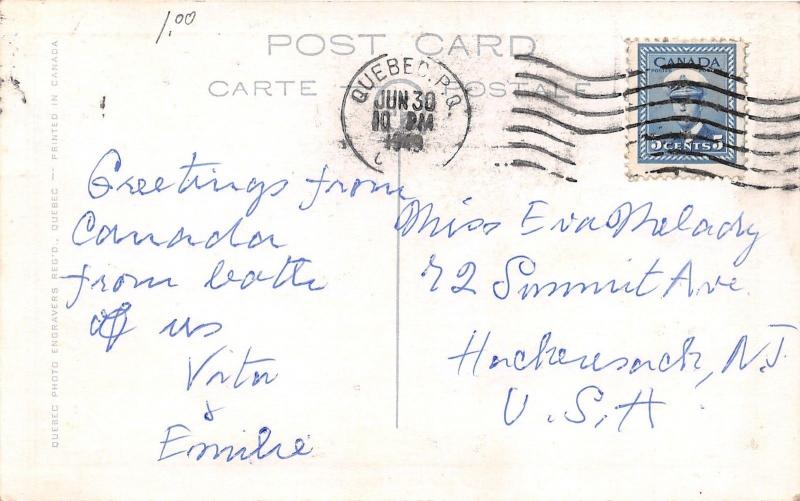 1.00
POST CARD
CARTE POSTALE
QUEBEC. P.Q.
JUN 30
10 PM
CANADA
5 CENTS 5
Greetings from
Canada
from both
of us
Vita
&
Emilie
Miss Eva
72 Summit Ave
Hackensack, N.J.
U.S.A
QUEBEC PHOTO ENGRAVERS REG'D., QUEBEC — PRINTED IN CANADA